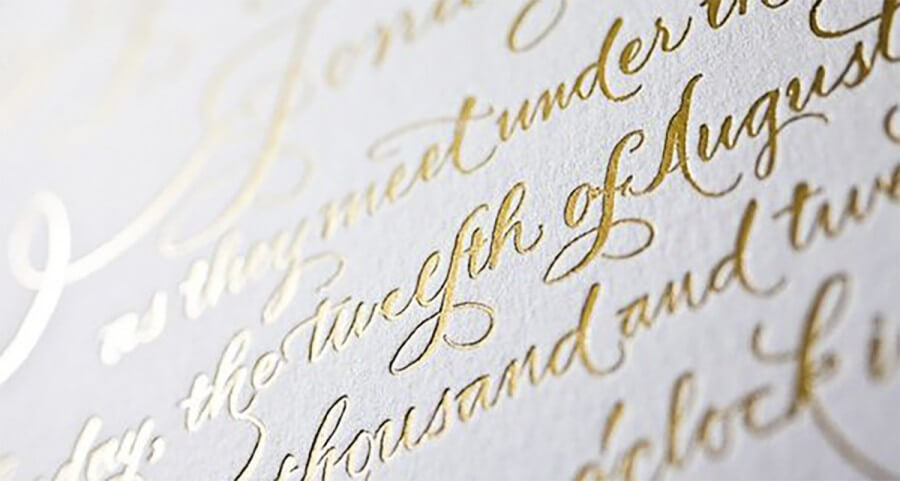 as they meet under the
day, the twelfth of August
thousand and twe
o'clock i